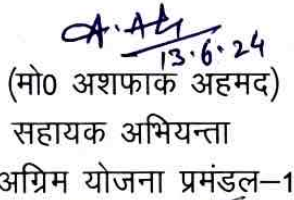 13.6.24
(मो0 अशफाक अहमद)
सहायक अभियन्ता
अग्रिम योजना प्रमंडल–1